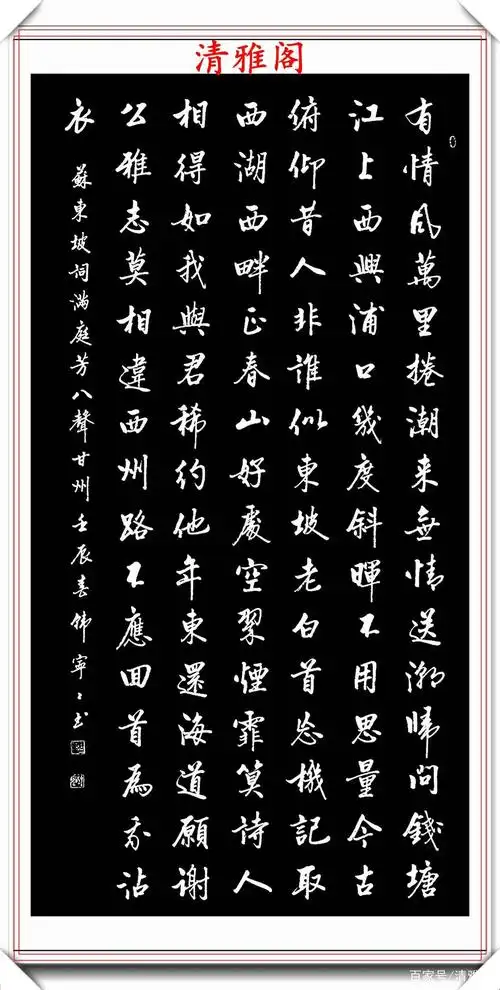 清雅阁
有情风萬里捲潮来無情送潮歸问錢塘
江上西興浦口幾度斜暉不用思量今古
俯仰昔人非誰似東坡老白首忘機記取
西湖西畔正春山好處空翠煙霏算詩人
相得如我與君稀约他年東還海道願谢
公雅志莫相違西州路不應回首為我沾
衣
蘇東坡词满庭芳八聲甘州壬辰春伟寧〻书
百家号/清雅